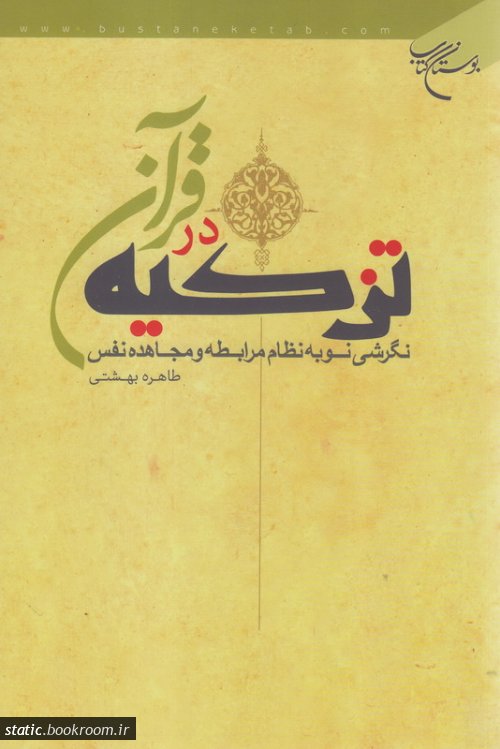 www.bustaneketab.com
بوستان کتاب
تزکیه در قرآن
نگرشی نو به نظام مرابطه و مجاهده نفس
طاهره بهشتی
static.bookroom.ir